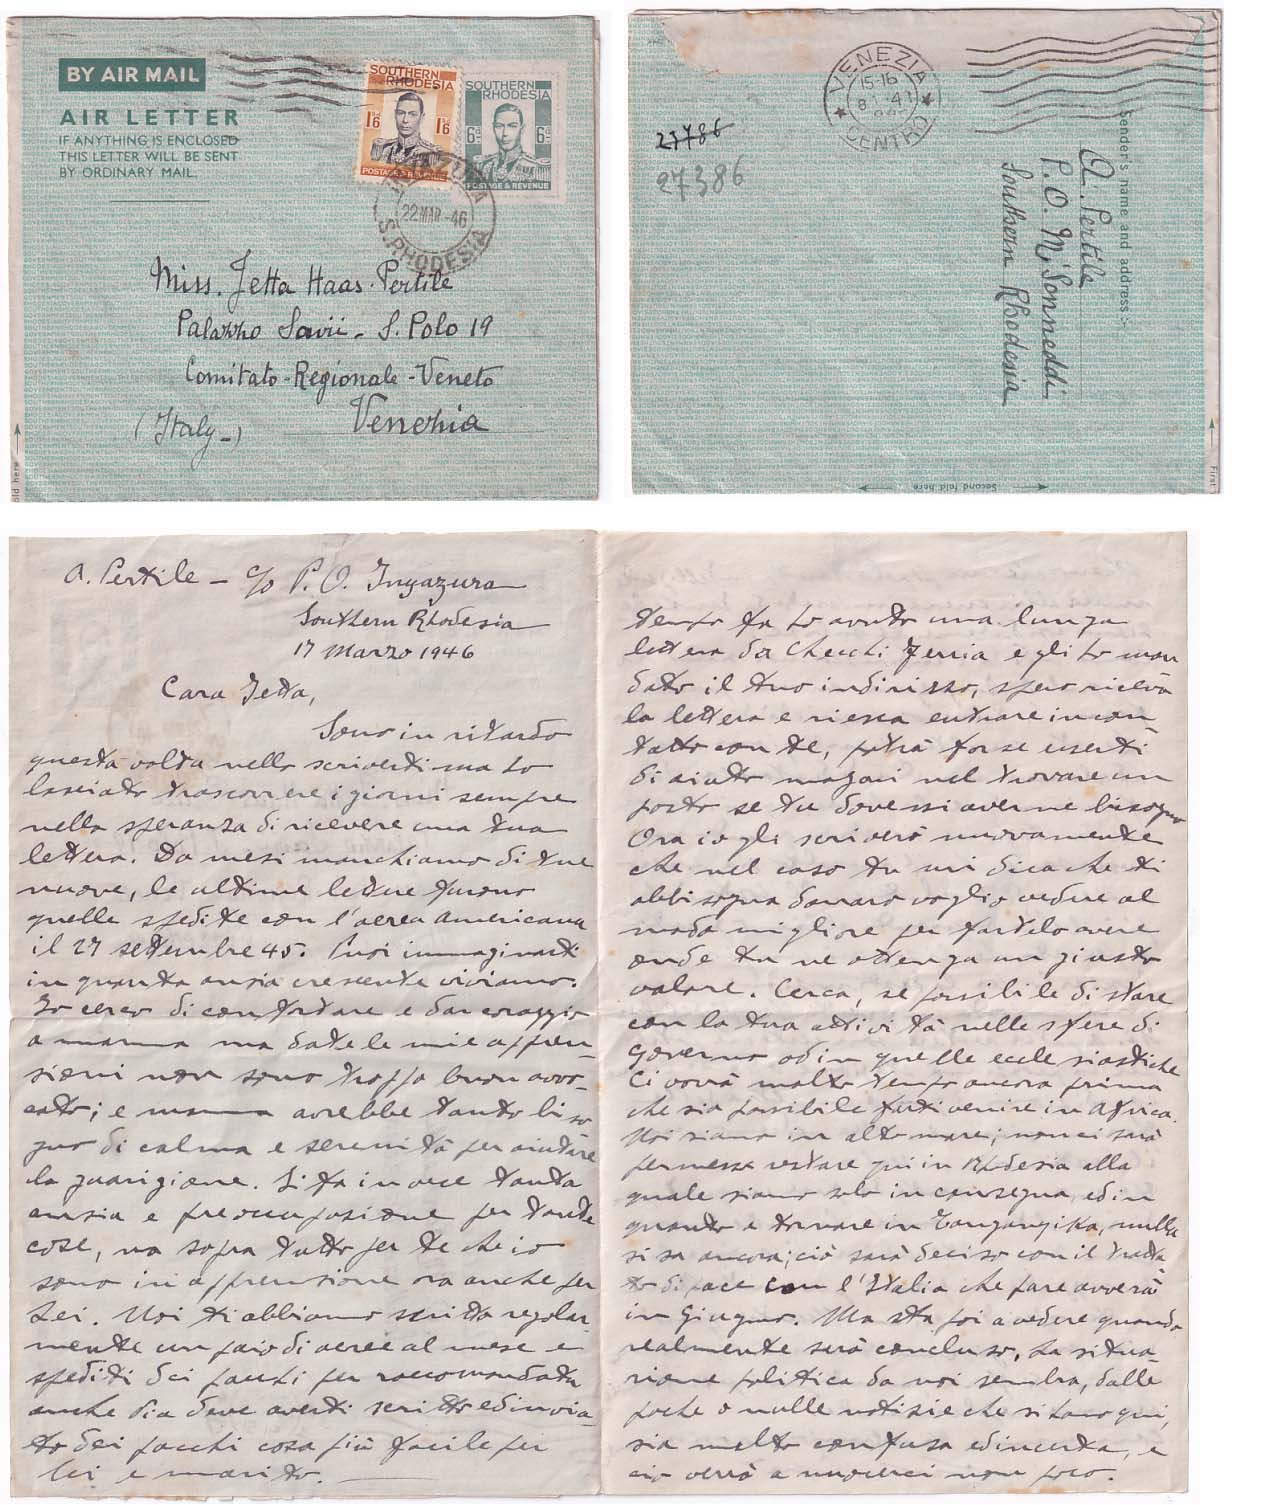 BY AIR MAIL
AIR LETTER
IF ANYTHING IS ENCLOSED
THIS LETTER WILL BE SENT
BY ORDINARY MAIL.
SOUTHERN
RHODESIA
1/6 1/6
POSTAGE & REVENUE
SOUTHERN
RHODESIA
6d 6d
POSTAGE & REVENUE
22 MAR 46
S. RHODESIA
Miss. Jetta Haas-Pertile
Palazzo Savii - S. Polo 19
Comitato-Regionale-Veneto
(Italy-) Venezia
VENEZIA
15-16
CENTRO
27786
27386
Sender's name and address:-
A. Pertile
P.O. M'Sonneddi
Southern Rhodesia
Second fold here
First
A. Pertile - c/o P. O. Inyazura
Southern Rhodesia
17 Marzo 1946
Cara Jetta,
Sono in ritardo
questa volta nello scriverti ma ho
lasciato trascorrere i giorni sempre
nella speranza di ricevere una tua
lettera. Da mesi manchiamo di tue
nuove, le ultime lettere furono
quelle spedite con l'aerea Americana
il 27 settembre 45. Puoi immaginarti
in quanta ansia crescente viviamo.
Io cerco di confortare e dar coraggio
a mamma ma date le mie appren-
sioni non sono troppo buon avvo-
cato; e mamma avrebbe tanto biso
gno di calma e serenità per aiutare
la guarigione. Si fa invece tanta
ansia e preoccupazione per tante
cose, ma sopra tutto per te che io
sono in apprensione ora anche per
Lei. Noi ti abbiamo scritto regolar-
mente un paio di aeree al mese e
spediti dei pacchi per raccomandata
anche Pia deve averti scritto ed invia-
to dei pacchi cosa più facile per
lei e marito.
tempo fa ho avuto una lunga
lettera da Checchi e gli ho man
dato il tuo indirizzo, spero riceva
la lettera e riesca entrare in con
tatto con te, potrà forse esserti
di aiuto magari nel trovare un
posto se tu dovessi averne bisogno
Ora io gli scriverò nuovamente
che nel caso tu mi dica che ti
abbisogna danaro voglio vedere al
modo migliore per fartelo avere
onde tu ne ottenga un giusto
valore. Cerca, se possibile di stare
con la tua attività nelle sfere di
Governo od in quelle ecclesiastiche
Ci vorrà molto tempo ancora prima
che sia possibile farti venire in Africa.
Noi siamo in alto mare; non ci sarà
permesso restare qui in Rhodesia alla
quale siamo solo in consegna, ed in
quanto a tornare in Tanganyika, nulla
si sa ancora; ciò sarà deciso con il tratta-
to di pace con l'Italia che pare avverrà
in Giugno. Ma sta poi a vedere quando
realmente sarà concluso, la situa-
zione politica da voi sembra, dalle
poche o nulle notizie che si hanno qui,
sia molto confusa ed incerta, e
ciò verrà a nuocerci non poco.